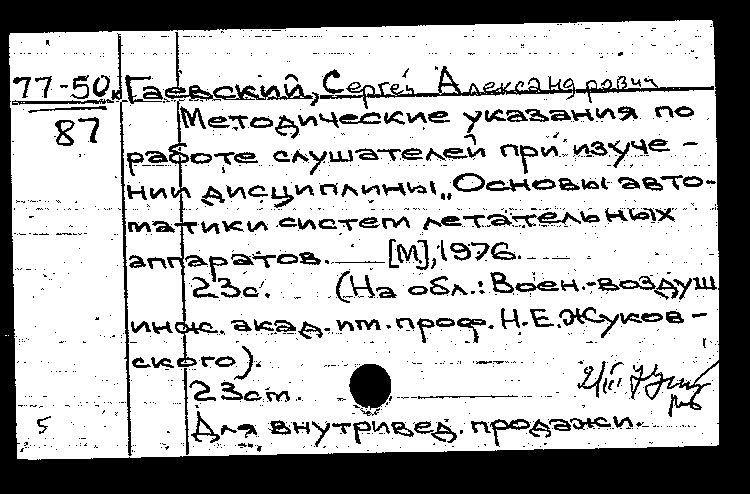 77-50к Гаевский, Сергей Александрович
87
Методические указания по
работе слушателей при изуче-
нии дисциплины „Основы авто-
матики систем летательных
аппаратов. [М], 1976.
23с. (На обл.: Воен.-воздуш
инж. акад. им. проф. Н.Е.Жуков-
ского).
23ст.
2/III
5 Для внутривед. продажи.